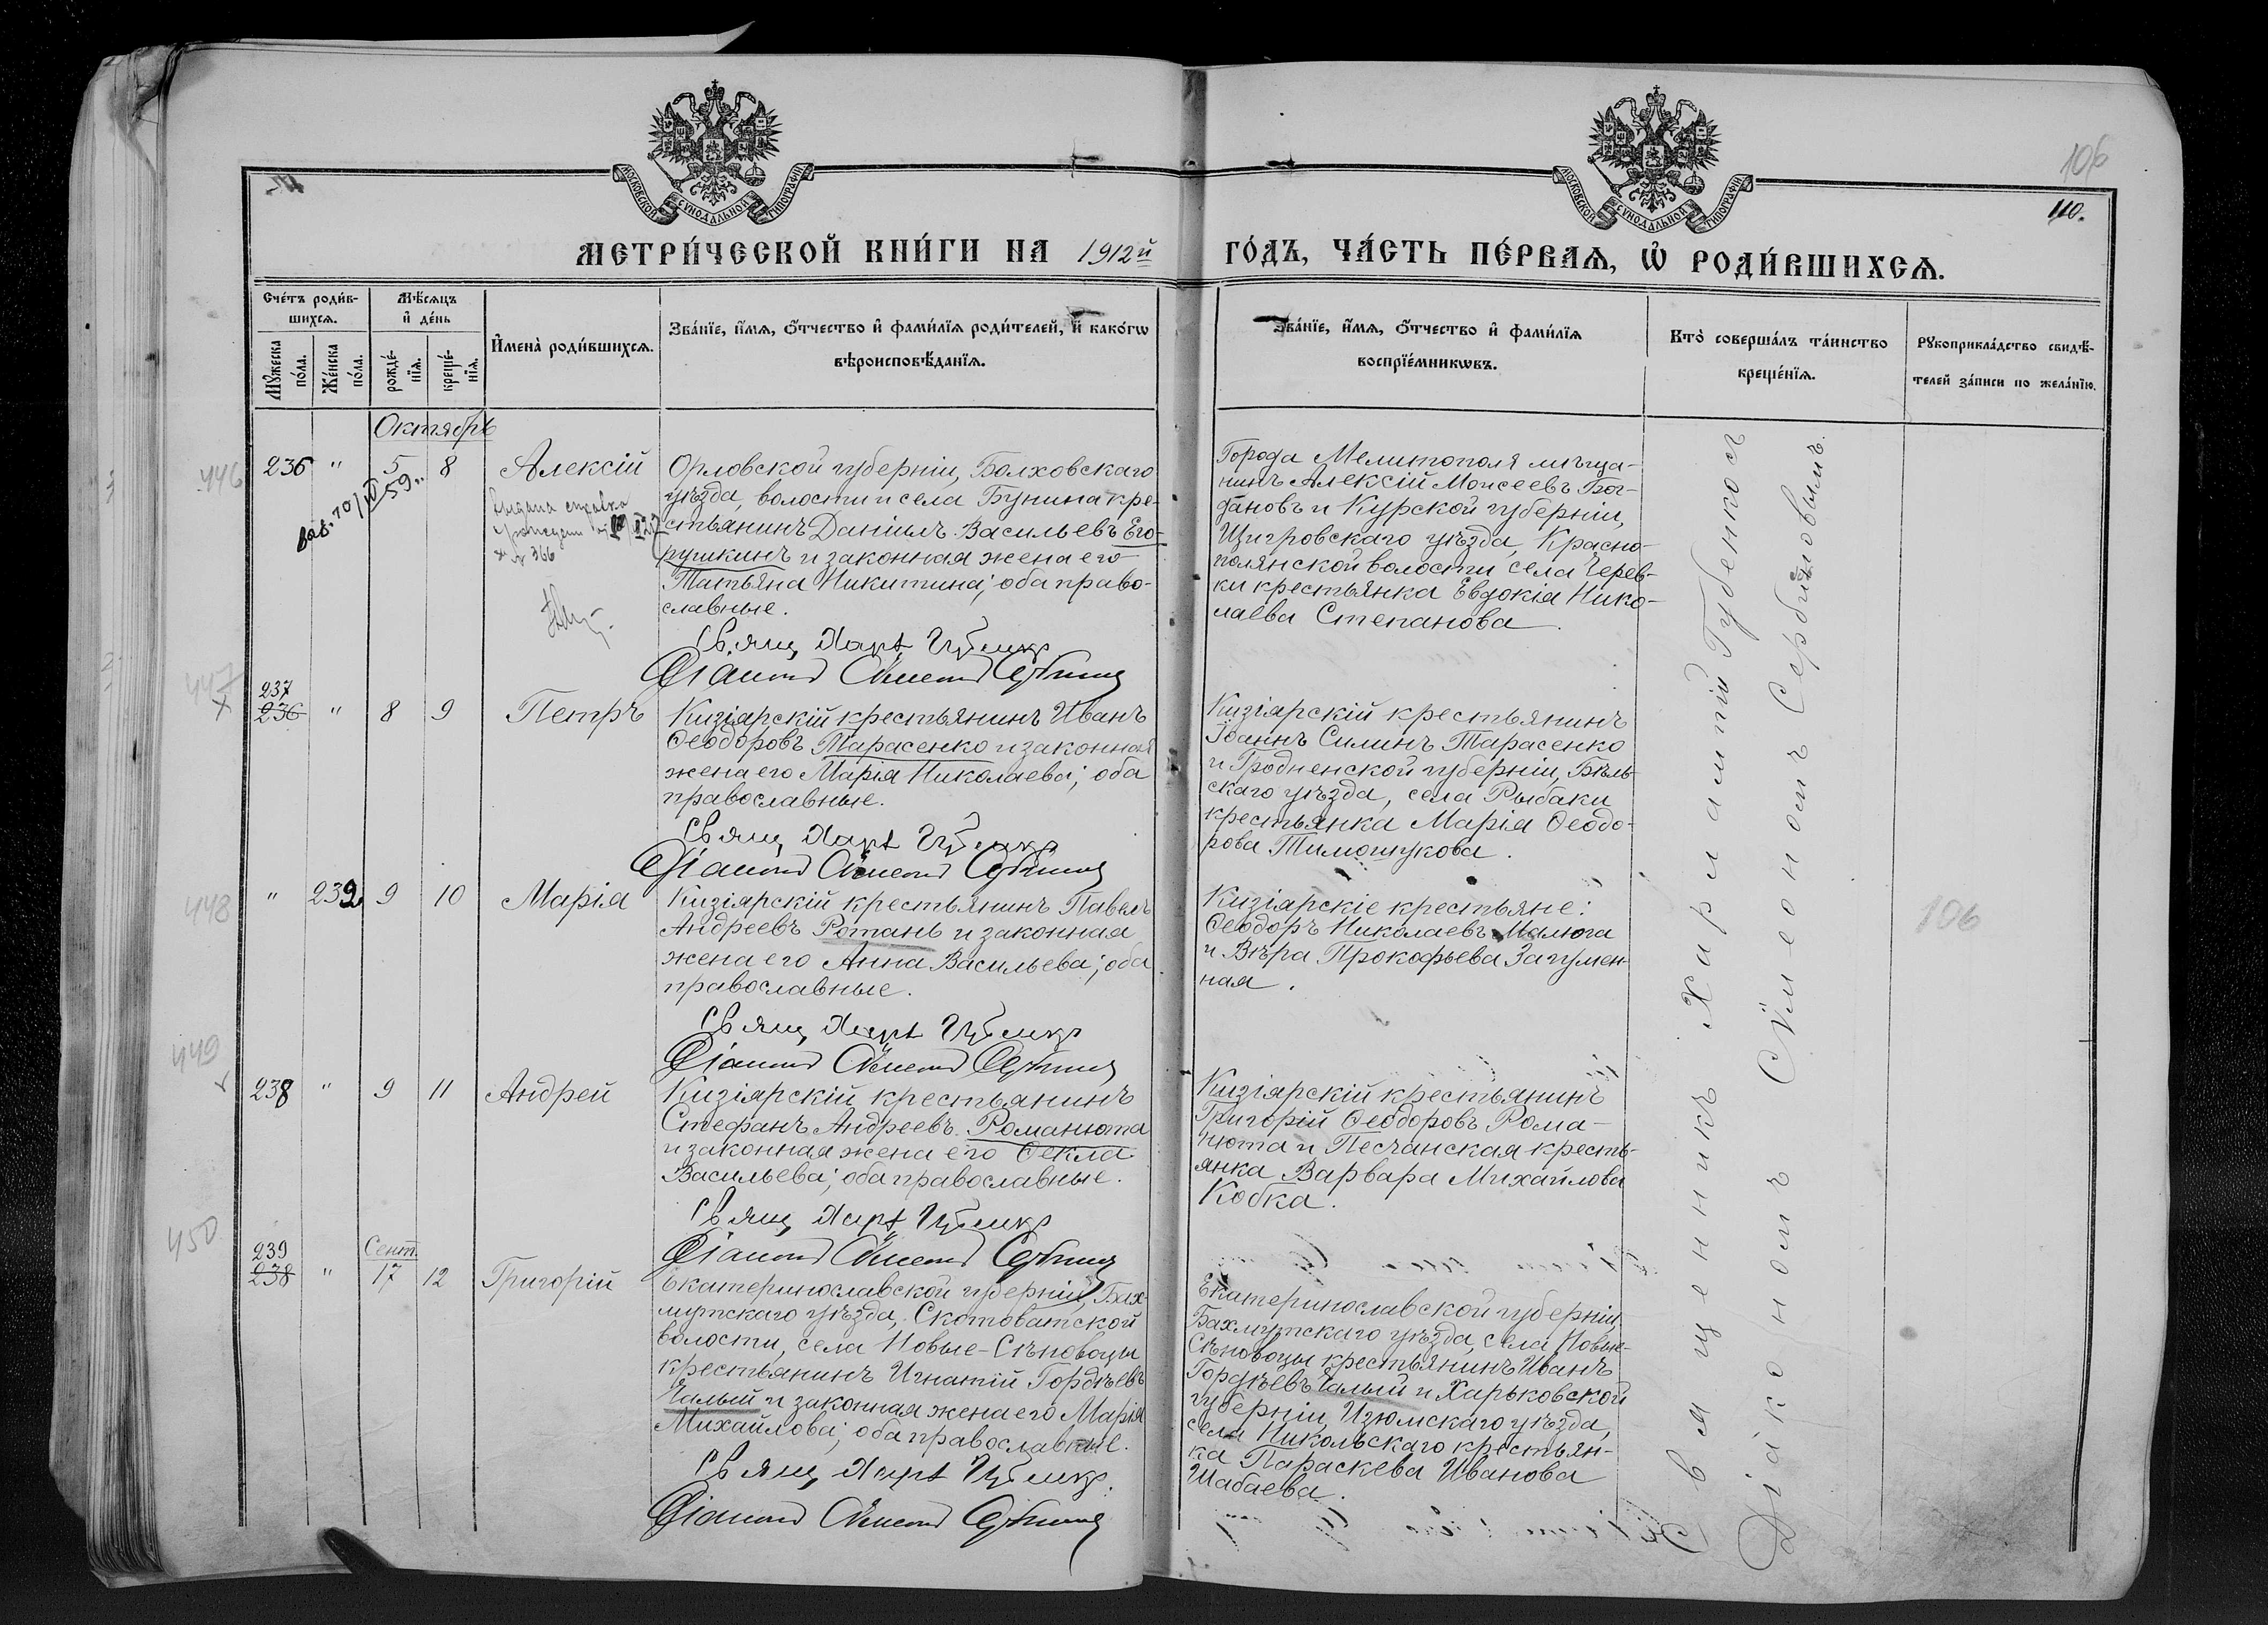 106
110.
МОСКОВСКОЙ СѴНОДАЛЬНОЙ ТИПОГРАФІИ
МОСКОВСКОЙ СѴНОДАЛЬНОЙ ТИПОГРАФІИ
МЕТРИ́ЧЕСКОЙ КНИ́ГИ НА 1912й
ГО́ДЪ, ЧА́СТЬ ПЕ́РВАѦ, Ѡ҆ РОДИ́ВШИХСѦ.
Сче́тъ роди́в-
шихсѧ.
Мѣ́сѧцъ
и҆ де́нь
И҆мена̀ роди́вшихсѧ.
Зва́нїе, и҆́мѧ, ѻ҆́тчество и҆ фами́лїѧ роди́телей, и҆ како́гѡ
вѣроисповѣ́данїѧ.
Му́жеска
по́ла.
Же́нска
по́ла.
рожде́-
нїѧ.
креще́-
нїѧ.
Зва́нїе, и҆́мѧ, ѻ҆́тчество и҆ фами́лїѧ
воспрїе́мникѡвъ.
Кто̀ соверша́лъ та́инство
креще́нїѧ.
Рꙋкоприкла́дство свидѣ́-
телей за́писи по жела́нїю.
Октябрь
446
236 " 5 8 Алексій
Орловской губерніи, Болховскаго
уѣзда, волости и села Бунина кре-
стьянинъ Даніилъ Васильевъ Его-
рушкинъ и законная жена его
Татьяна Никитина; оба право-
славные.
выдана справка
№ 366
59
Свящ. Харл. Губенко
Діаконъ Сѵмеонъ Сербиновъ
Города Мелитополя мѣща-
нинъ Алексій Моисеевъ Бог-
дановъ и Курской губерніи,
Щигровскаго уѣзда, Красно-
полянской волости села Черев-
ки крестьянка Евдокія Нико-
лаева Степанова.
447
237
236 " 8 9 Петръ
Кизіярскій крестьянинъ Иванъ
Ѳеодоровъ Тарасенко и законная
жена его Марія Николаева; оба
православные.
Свящ. Харл. Губенко
Діаконъ Сѵмеонъ Сербиновъ
Кизіярскій крестьянинъ
Іоаннъ Силинъ Тарасенко
и Гродненской губерніи, Бѣль-
скаго уѣзда, села Рыбаки
крестьянка Марія Ѳеодо-
рова Тимошукова.
448
" 232 9 10 Марія
Кизіярскій крестьянинъ Павелъ
Андреевъ Ротань и законная
жена его Анна Васильева; оба
православные.
Свящ. Харл. Губенко
Діаконъ Сѵмеонъ Сербиновъ
Кизіярскіе крестьяне:
Ѳеодоръ Николаевъ Малюга
и Вѣра Прокофьева Загумен-
ная.
106
449
238 " 9 11 Андрей
Кизіярскій крестьянинъ
Стефанъ Андреевъ Романюта
и законная жена его Ѳекла
Васильева; оба православные.
Свящ. Харл. Губенко
Діаконъ Сѵмеонъ Сербиновъ
Кизіярскій крестьянинъ
Григорій Ѳеодоровъ Рома-
нюта и Песчанская кресть-
янка Варвара Михайлова
Кобка.
450
239
238 " Сент. 17 12 Григорій
Екатеринославской губерніи, Бах-
мутскаго уѣзда, Скотоватской
волости, села Новые-Сѣновоцы
крестьянинъ Игнатій Гордѣевъ
Чалый и законная жена его Марія
Михайлова; оба православные.
Свящ. Харл. Губенко.
Діаконъ Сѵмеонъ Сербиновъ
Екатеринославской губерніи
Бахмутскаго уѣзда, села Новые-
Сѣновоцы крестьянинъ Иванъ
Гордѣевъ Чалый и Харьковской
губерніи, Изюмскаго уѣзда,
села Никольскаго крестьян-
ка Параскева Иванова
Шабаева.
Священникъ Харлампій Губенко съ
Діакономъ Сѵмеономъ Сербиновымъ.